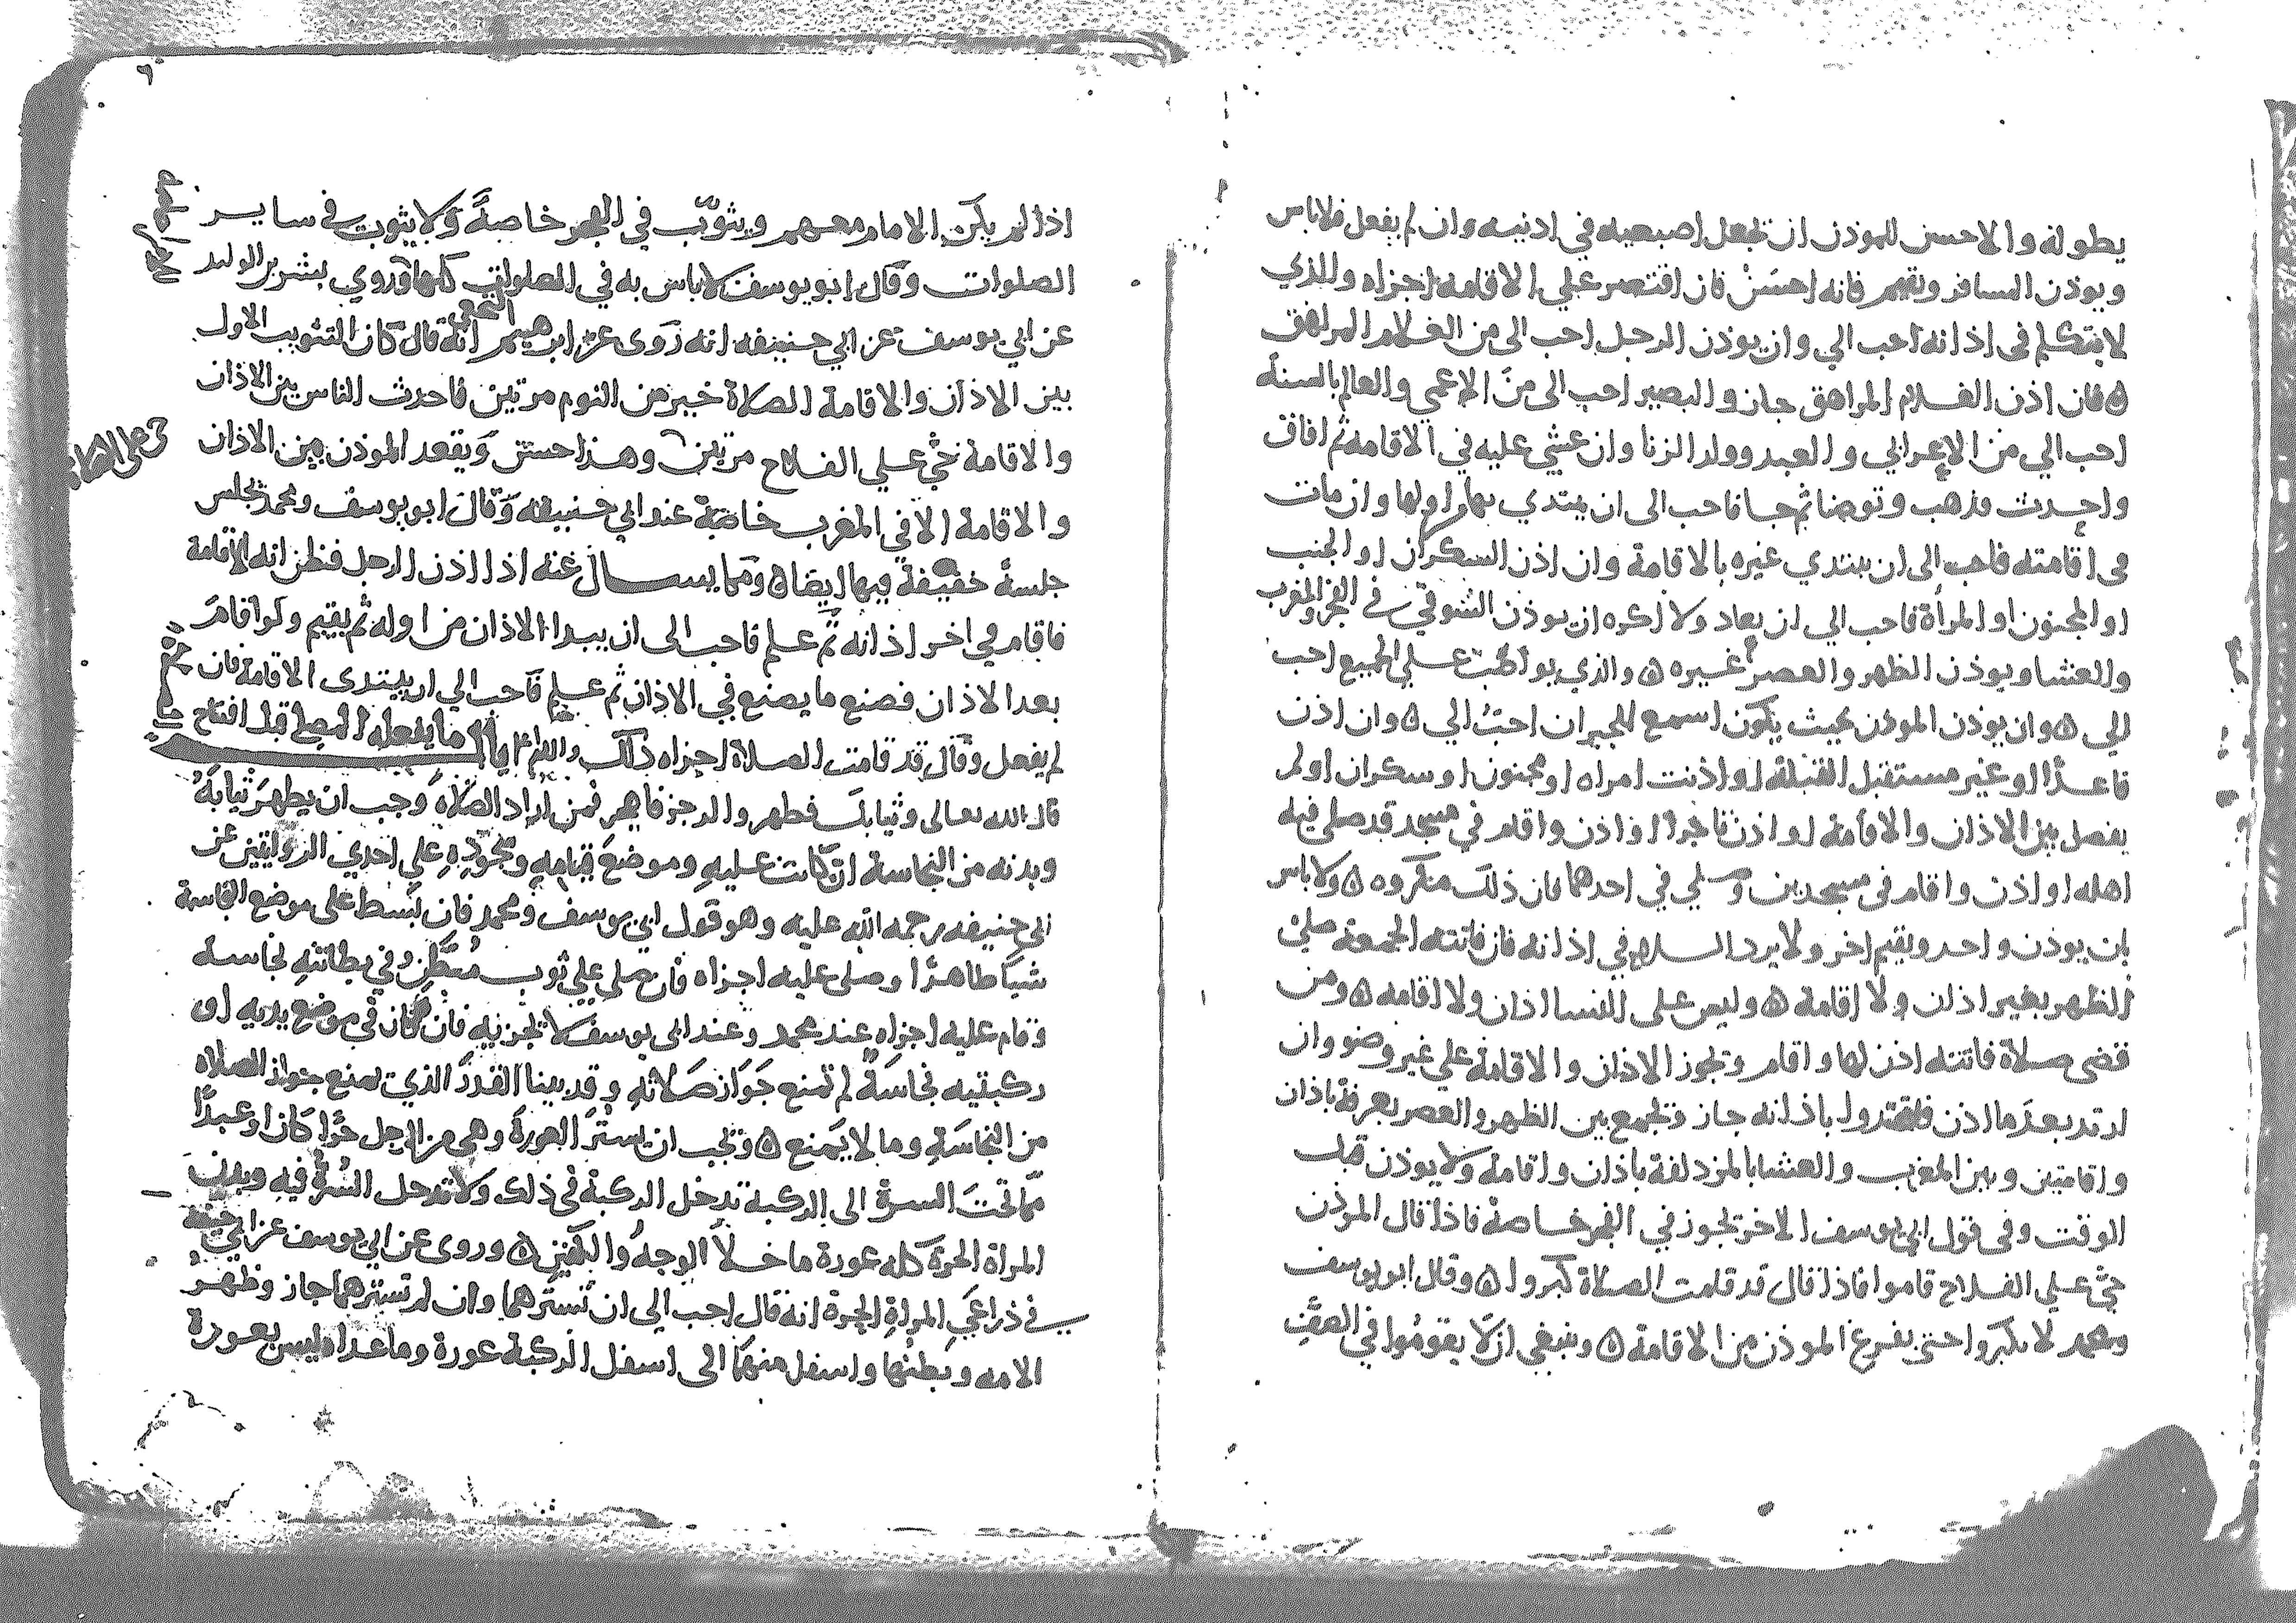 يطوله والاحسن للموذن ان تجعل اصبعيه في اذنيه وان لم يفعل فلاباس
ويوذن المسافر ويقيم فانه احسن فان اقتصر علي الاقامه اجزاه والذي
لا يتكلم في اذانه احب الي وان يوذن الرجل احب الى من الغلام المراهق
ه فان اذن الغلام المراهق جاز والبصير احب الى من الاعمي والعالم بالسنة
احب الي من الاعرابي والعبد وولد الزنا وان غشي عليه في الاقامه ثم افاق
واحدث فذهب وتوضا ثم جا فاحب الى ان يبتدي بها من اولها وان مات
في اقامته فاحب الى ان يبتدي غيره بالاقامة وان اذن السكران او الجنب
او المجنون او المرأة فاحب الي ان يعاد ولا اكره ان يوذن السوقي في الفجر والمغرب
والعشا ويوذن الظهر والعصر غيره ه والذي يواظب علي الجميع احب
الي ه وان يوذن الموذن بحيث يكون اسمع للجيران احب الي ه وان اذن
قاعدا او غير مستقبل القبلة او اذنت امراه او مجنون او سكران او لم
يفصل بين الاذان والاقامة او اذن فاجرا او اذن واقام في مسجد قد صلي فيه
اهله او اذن واقام في مسجدين وصلي في احدهما فان ذلك مكروه ه ولا باس
بان يوذن واحد ويقيم اخر ولا يرد السلام في اذانه فان فاتته الجمعة صلي
الظهر بغير اذان ولا اقامة ه وليس على النسا اذان ولا اقامه ه ومن
قضى صلاة فاتته اذن لها واقام وتجوز الاذان والاقامة علي غير وضو وان
ارتد بعد ما اذن فاعتدوا باذانه جاز وتجمع بين الظهر والعصر بعرفة باذان
واقامتين وبين المغرب والعشا بالمزدلفة باذان واقامة ولا يوذن قبل
الوقت وفي قول ابي يوسف الاخر تجوز في الفجر خاصة فاذا قال الموذن
حي علي الفلاح قاموا فاذا قال قد قامت الصلاة كبروا ه وقال ابو يوسف
ومحمد لا يكبروا حتى يفرغ الموذن من الاقامة ه وينبغي ان لا يقوموا في الصف
اذا لم يكن الامام معهم ويثوب في الفجر خاصة ولا يثوب في ساير
الصلوات وقال ابو يوسف لا باس به في الصلوات كلها وروي بشر بن الوليد
عن ابي يوسف عن ابي حنيفه انه روى عن ابرهيم النخعي انه قال كان التثويب الاول
بين الاذان والاقامة الصلاة خير من النوم مرتين فاحدث الناس بين الاذان
والاقامة حي علي الفلاح مرتين وهذا حسن ويقعد الموذن بين الاذان
حي على الصلاة
والاقامة الا في المغرب خاصة عند ابي حنيفه وقال ابو يوسف ومحمد تجلس
جلسة خفيفة فيها ايضا ه ومما يسال عنه اذا اذن الرجل فظن انه الاقامة
فاقام في اخر اذانه ثم علم فاحب الى ان يبدا الاذان من اوله ثم يقيم ولو اقام
بعد الاذان فصنع ما يصنع في الاذان ثم علم فاحب الي ان يبتدى الاقامة فان
لم يفعل وقال قد قامت الصلاة اجزاه ذلك والله اعلم باب ما يفعله المصلي قبل افتتاح
قال الله تعالى وثيابك فطهر والرجز فاهجر فمن اراد الصلاة وجب ان يطهر ثيابه
وبدنه من النجاسة ان كانت عليه وموضع قيامه وسجوده علي احدي الروايتين عن
ابي حنيفه رحمه الله عليه وهو قول ابي يوسف ومحمد فان بسط على موضع النجاسة
شيا طاهرا وصلى عليه اجزاه فان صلى علي ثوب مبطن وفي بطانته نجاسة
وقام عليه اجزاه عند محمد وعند ابي يوسف لا تجزيه فان كان في موضع يديه او
ركبتيه نجاسة لم تمنع جواز صلاته وقد بينا القدر الذي يمنع جواز الصلاه
من النجاسة وما لا يمنع ه وتجب ان يستر العورة وهي من الرجل حرا كان او عبدا
ما تحت السرة الى الركبة تدخل الركبة في ذلك ولا تدخل السرة فيه وبدن
المراة الحرة كله عورة ما خلا الوجه والكفين ه وروى عن ابي يوسف عن ابي حنيفة
في ذراعي المراة الحرة انه قال احب الى ان تسترهما وان لم تسترهما جاز وظهر
الامه وبطنها واسفل منهما الى اسفل الركبة عورة وما عداه ليس بعورة